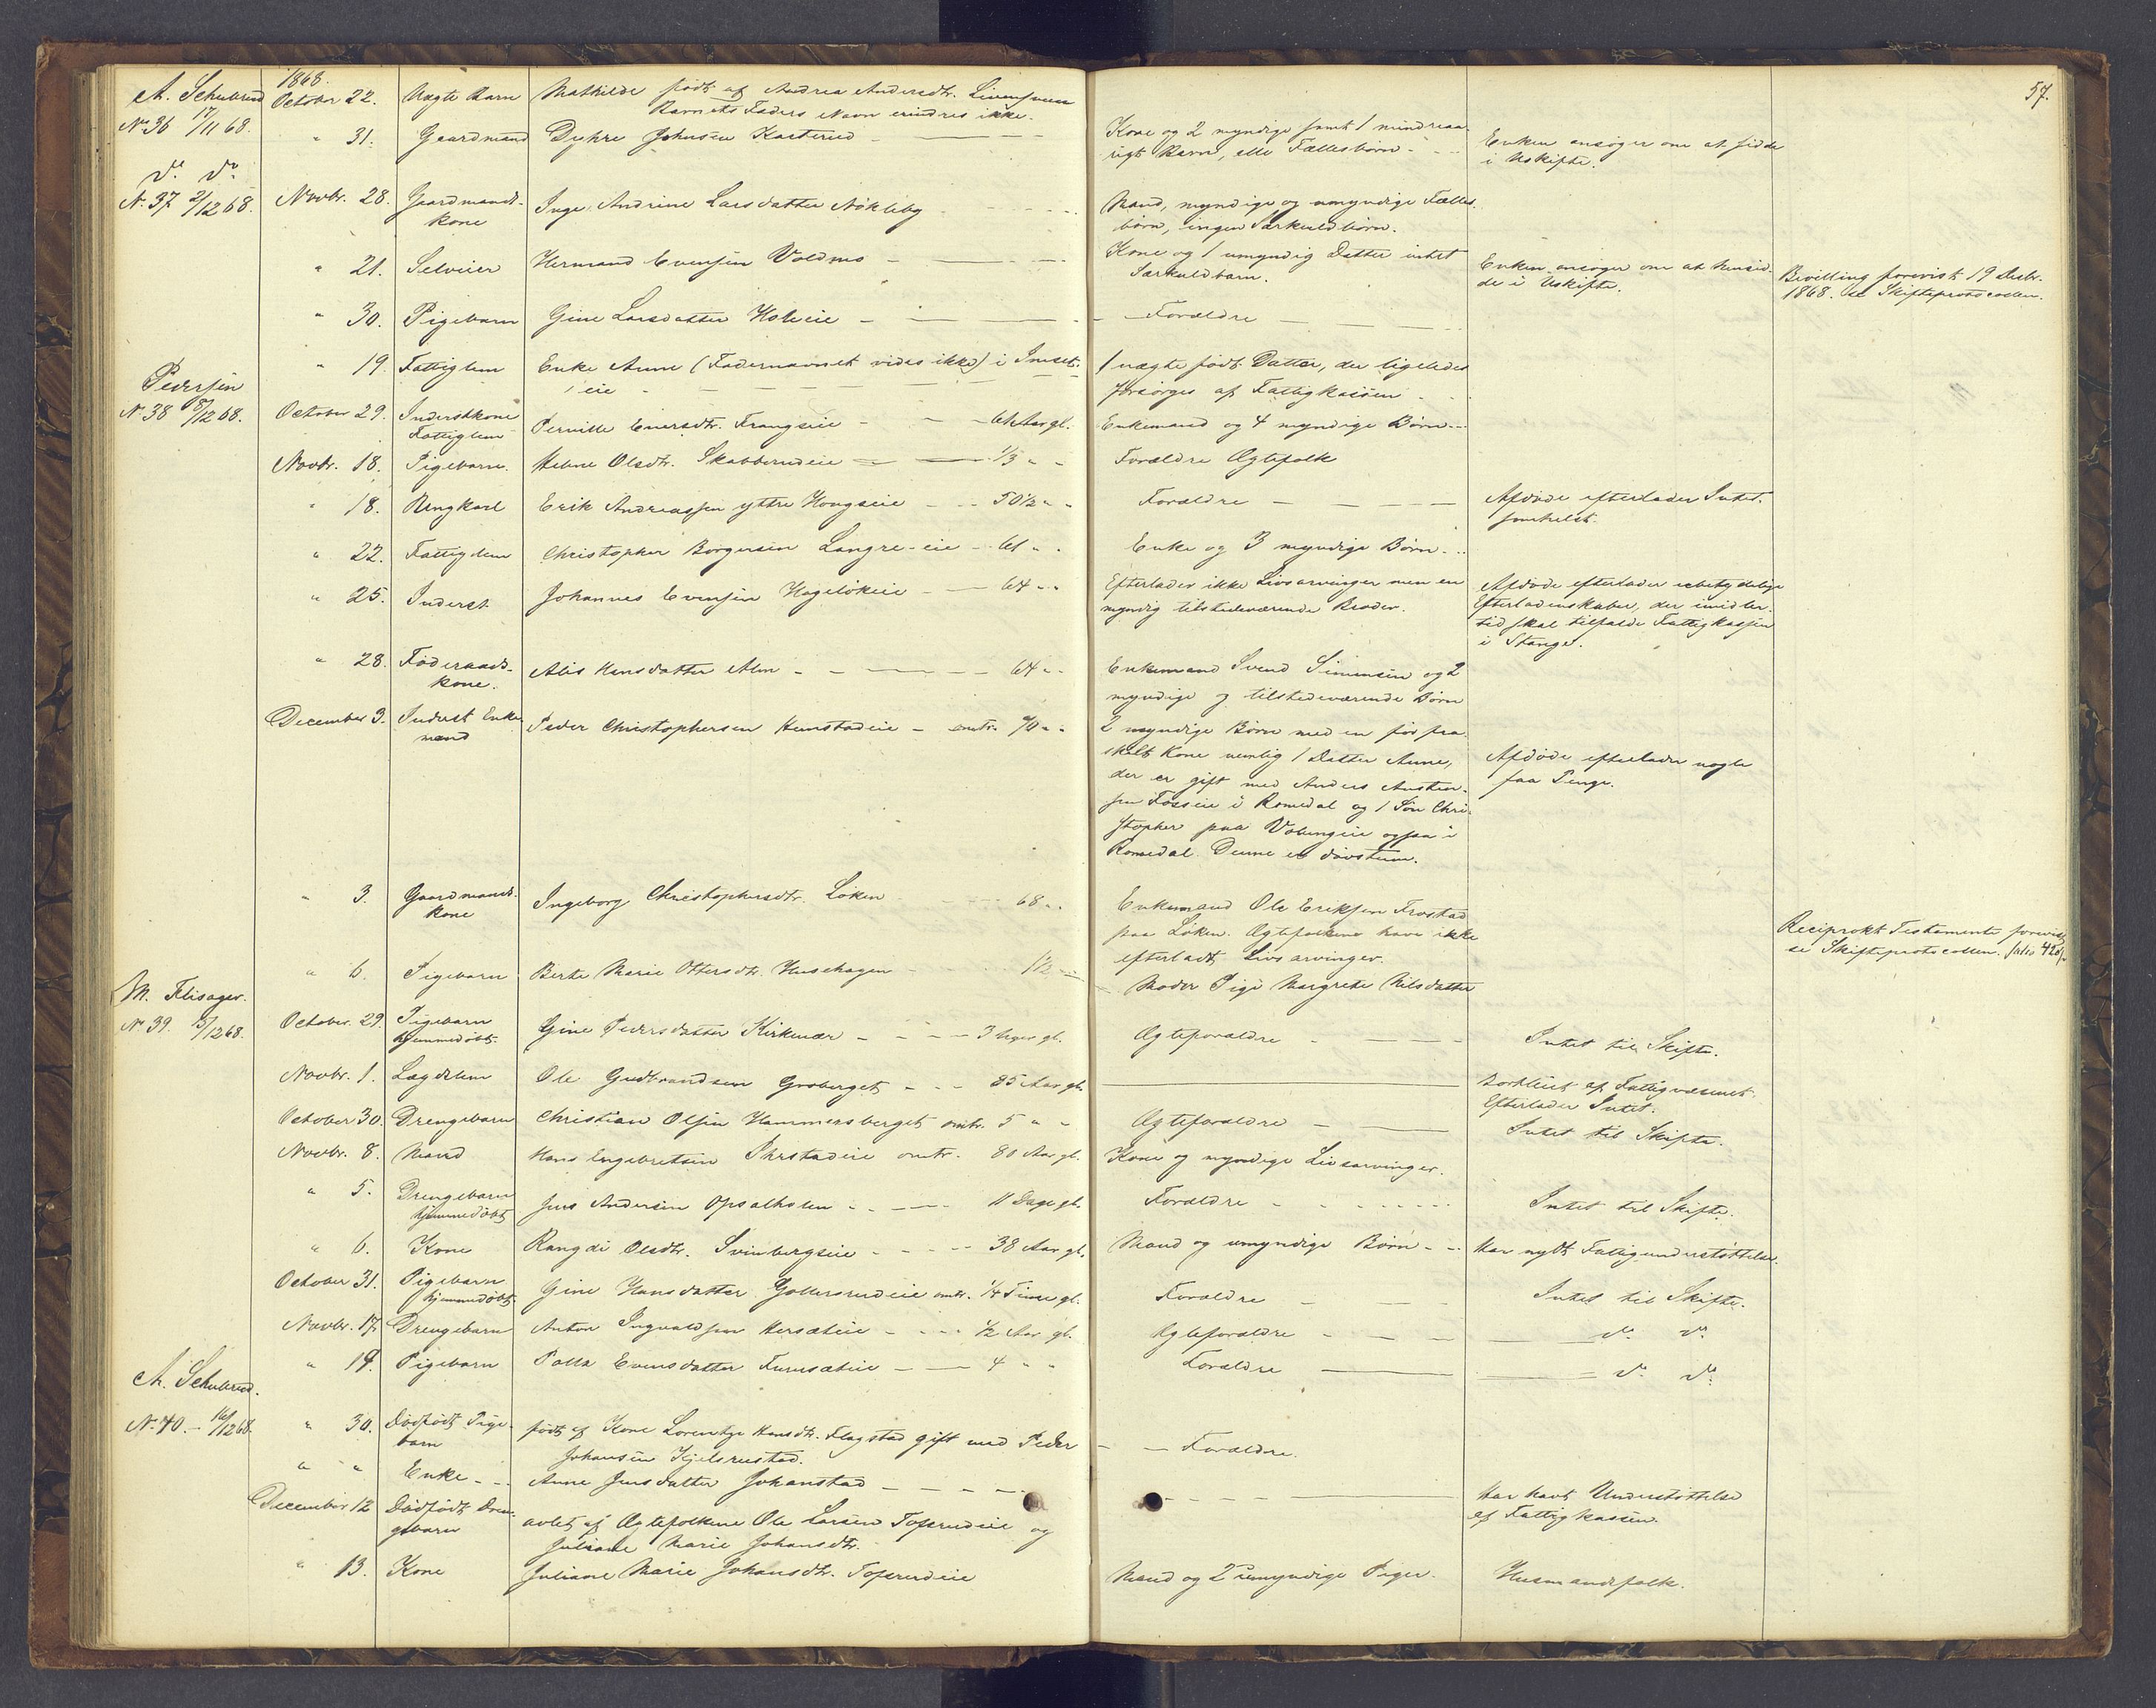 57.
A. Schulerud
1868.
October 22. Uægte Barn Mathilde født af Andrea Andersdtr.
Barnets Faders Navn erindres ikke.
No 36 17/11 68.
" 31. Gaardmand Dyhre Johnsen Kasterud Kone og 2 myndige samt 1 mindreaa-
rigt Barn, alle Fællesbørn. Enken ansøger om at sidde
i Uskifte.
do do
N. 37 2/12 68. Novbr. 28. Gaardmands- Inge Andrine Larsdatter Nökleby Mand, myndige og umyndige Fælles
kone børn, ingen Særkuldbørn.
" 21. Selveier Hermand Evensen Voldmo Kone og 1 umyndig Datter intet
Særkuldbarn. Enken ansøger om at hensid-
de i Uskifte. Bevilling forevist 19 Decbr.
1868. se Skifteprotocollen.
" 30. Pigebarn Gine Larsdatter Forældre
" 19. Fattiglem Enke Anne (Fadernavnet vides ikke) i
eie 1 uægte født Datter, der ligeledes
forsørges af Fattigkassen
Pedersen
N. 38 8/12 68. October 29. Inderstkone Pernille Eversdtr. Frangseie 61 Aar gl. Enkemand og 4 myndige Børn
Fattiglem
Novbr. 18. Pigebarn. Helene Olsdtr. Skabberudeie 1/3 " " Forældre Ægtefolk
" 18. Ungkarl Erik Andreassen yttre Hougseie 50 1/2 " " Forældre Afdøde efterlader Intet-
somhelst.
" 22. Fattiglem Christopher Borgersen Langre-eie 61 " " Enke og 3 myndige Børn
" 25. Inderst Johannes Evensen Hagelökeie 64 " " Efterlader ikke Livsarvinger men en
myndig tilstedeværende Broder. Afdøde efterlader ubetydelige
Efterladenskaber, der imidler-
tid skal tilfalde Fattigkassen
i Stange.
" 28. Föderaads- Alis Hansdatter Alm 64 " " Enkemand Svend Simensen og 2
kone. myndige og tilstedeværende Børn
December 3. Inderst Enke Peder Christophersen Hemstadeie omtr. 70 " " 2 myndige Børn med en før fra-
mand skilt Kone nemlig 1 Datter Anne,
der er gift med Anders
Fosseie i Romedal og 1 Søn Chri-
stopher paa ogsaa i
Romedal. Denne er døvstum. Afdøde efterlader nogle
faa Penge.
" 3. Gaardmands- Ingeborg Christophersdtr. Löken 68 " " Enkemand Ole Eriksen Frostad
kone paa Löken. Ægtefolkene have ikke
efterladt Livsarvinger. Reciprokt Testamente forevist
se Skifteprotocollen. folio 426
" 6. Pigebarn Berte Marie Ottersdtr. Husehagen 1 1/2 Moder Pige Margrete Nilsdatter
M. Flisager.
No 39. 3/12 68. October. 29. Pigebarn Gine Pedersdatter Kirkenær 3 Uger gl. Ægteforældre Intet til Skifte.
hjemmedøbt
Novbr. 1. Lægdslem Ole Gudbrandsen Groberget 85 Aar gl. Efterlader Intet.
October 30. Drengebarn Christian Olsen Hammersberget omtr. 5 " " Ægteforældre Intet til Skifte.
Novbr. 8. Mand Hans Engebretsen omtr. 80 Aar gl. Kone og myndige Livsarvinger.
" 5. Drengebarn Jens Andersen Opsalholen 11 Dage gl. Forældre Intet til Skifte.
hjemmedøbt
" 6. Kone Rangdi Olsdtr. Svenbergseie 38 Aar gl. Mand og umyndige Børn Har nydt Fattigunderstøttelse.
October 31. Pigebarn Gine Hansdatter Gollersrudeie omtr. 1/4 Time gl. Forældre Intet til Skifte.
hjemmedøbt
Novbr. 17. Drengebarn Anton Ingvaldsen Hersæteie 1/2 Aar gl. Ægteforældre do do
" 19. Pigebarn Evensdatter Furusæteie 4 " " Forældre do do
A. Schulerud.
N. 40. 16/12 68. " 30. Dødfødt Pige- født af Kone Lorentze Hansdtr. Flagstad gift med Peder Forældre.
barn Johansen Kjelsrustad.
" " Enke Anne Jensdatter Johanstad Har havt Understøttelse
af Fattigkassen.
December 12 Dødfødt Dren- avlet af Ægtefolkene Ole Larsen Tofsrudeie og
gebarn Juliane Marie Johansdtr.
" 13. Kone Juliane Marie Johansdtr. Tofsrudeie Mand og 2 umyndige Piger. Husmandsfolk.